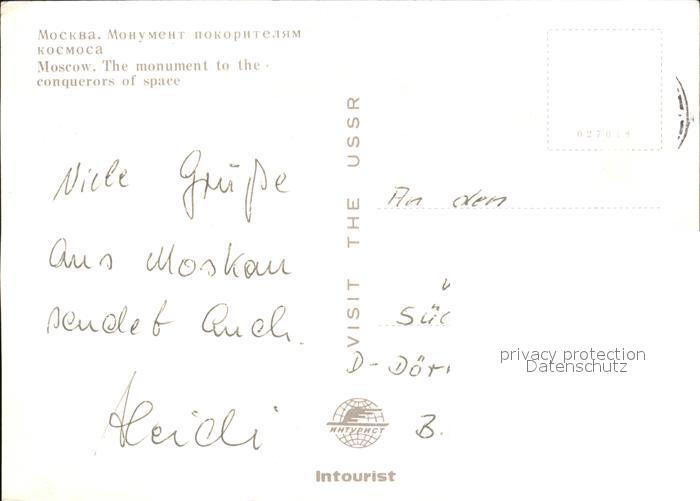 Москва. Монумент покорителям
космоса
Moscow. The monument to the
conquerors of space
027018
VISIT THE USSR
Viele Grüße
aus Moskau
sendet Euch
Heidi
An den
D-Dör
B.
privacy protection
Datenschutz
ИНТУРИСТ
Intourist